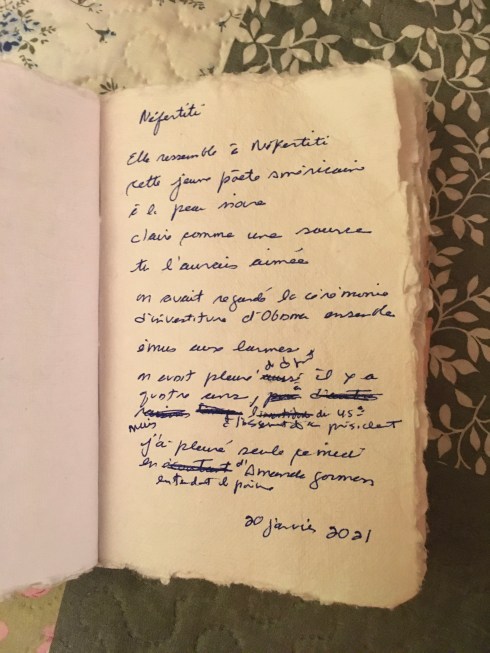 Néfertiti
Elle ressemble à Néfertiti
cette jeune poète américaine
à la peau noire
claire comme une source
tu l'aurais aimée
on avait regardé la cérémonie
d'investiture d'Obama ensemble
émus aux larmes
on avait pleuré aussi il y a
quatre ans, à
l'investiture du 45e
à l'assermt d'un président
mais
j'ai pleuré seule ce midi
en écoutant d'Amanda Gorman
entendant le poème
20 janvier 2021